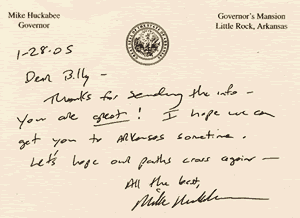 Mike Huckabee
Governor
Governor's Mansion
Little Rock, Arkansas
1-28-05
Dear Billy -
Thanks for sending the info -
You are great! I hope we can
get you to Arkansas sometime.
Let's hope our paths cross again -
All the best,
Mike Huckabee